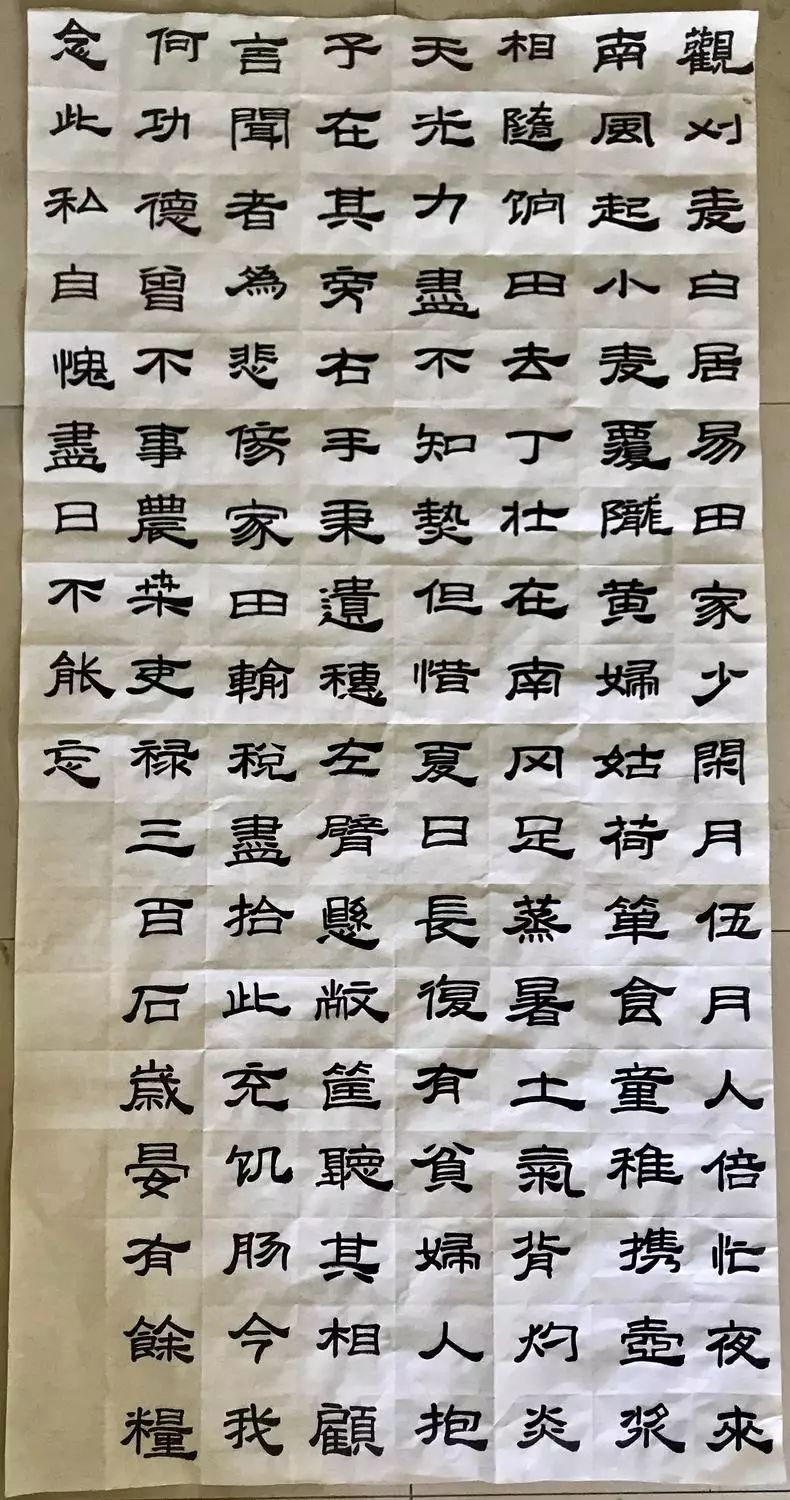 觀刈麦白居易田家少閑月伍月人倍忙夜來
南風起小麦覆隴黄婦姑荷箪食童稚携壺浆
相隨饷田去丁壮在南冈足蒸暑土氣背灼炎
天光力盡不知熱但惜夏日長復有貧婦人抱
子在其旁右手秉遺穗左臂懸敝筐聽其相顧
言聞者為悲傷家田輸税盡拾此充饥肠今我
何功德曾不事農桒吏禄三百石歲晏有餘糧
念此私自愧盡日不能忘